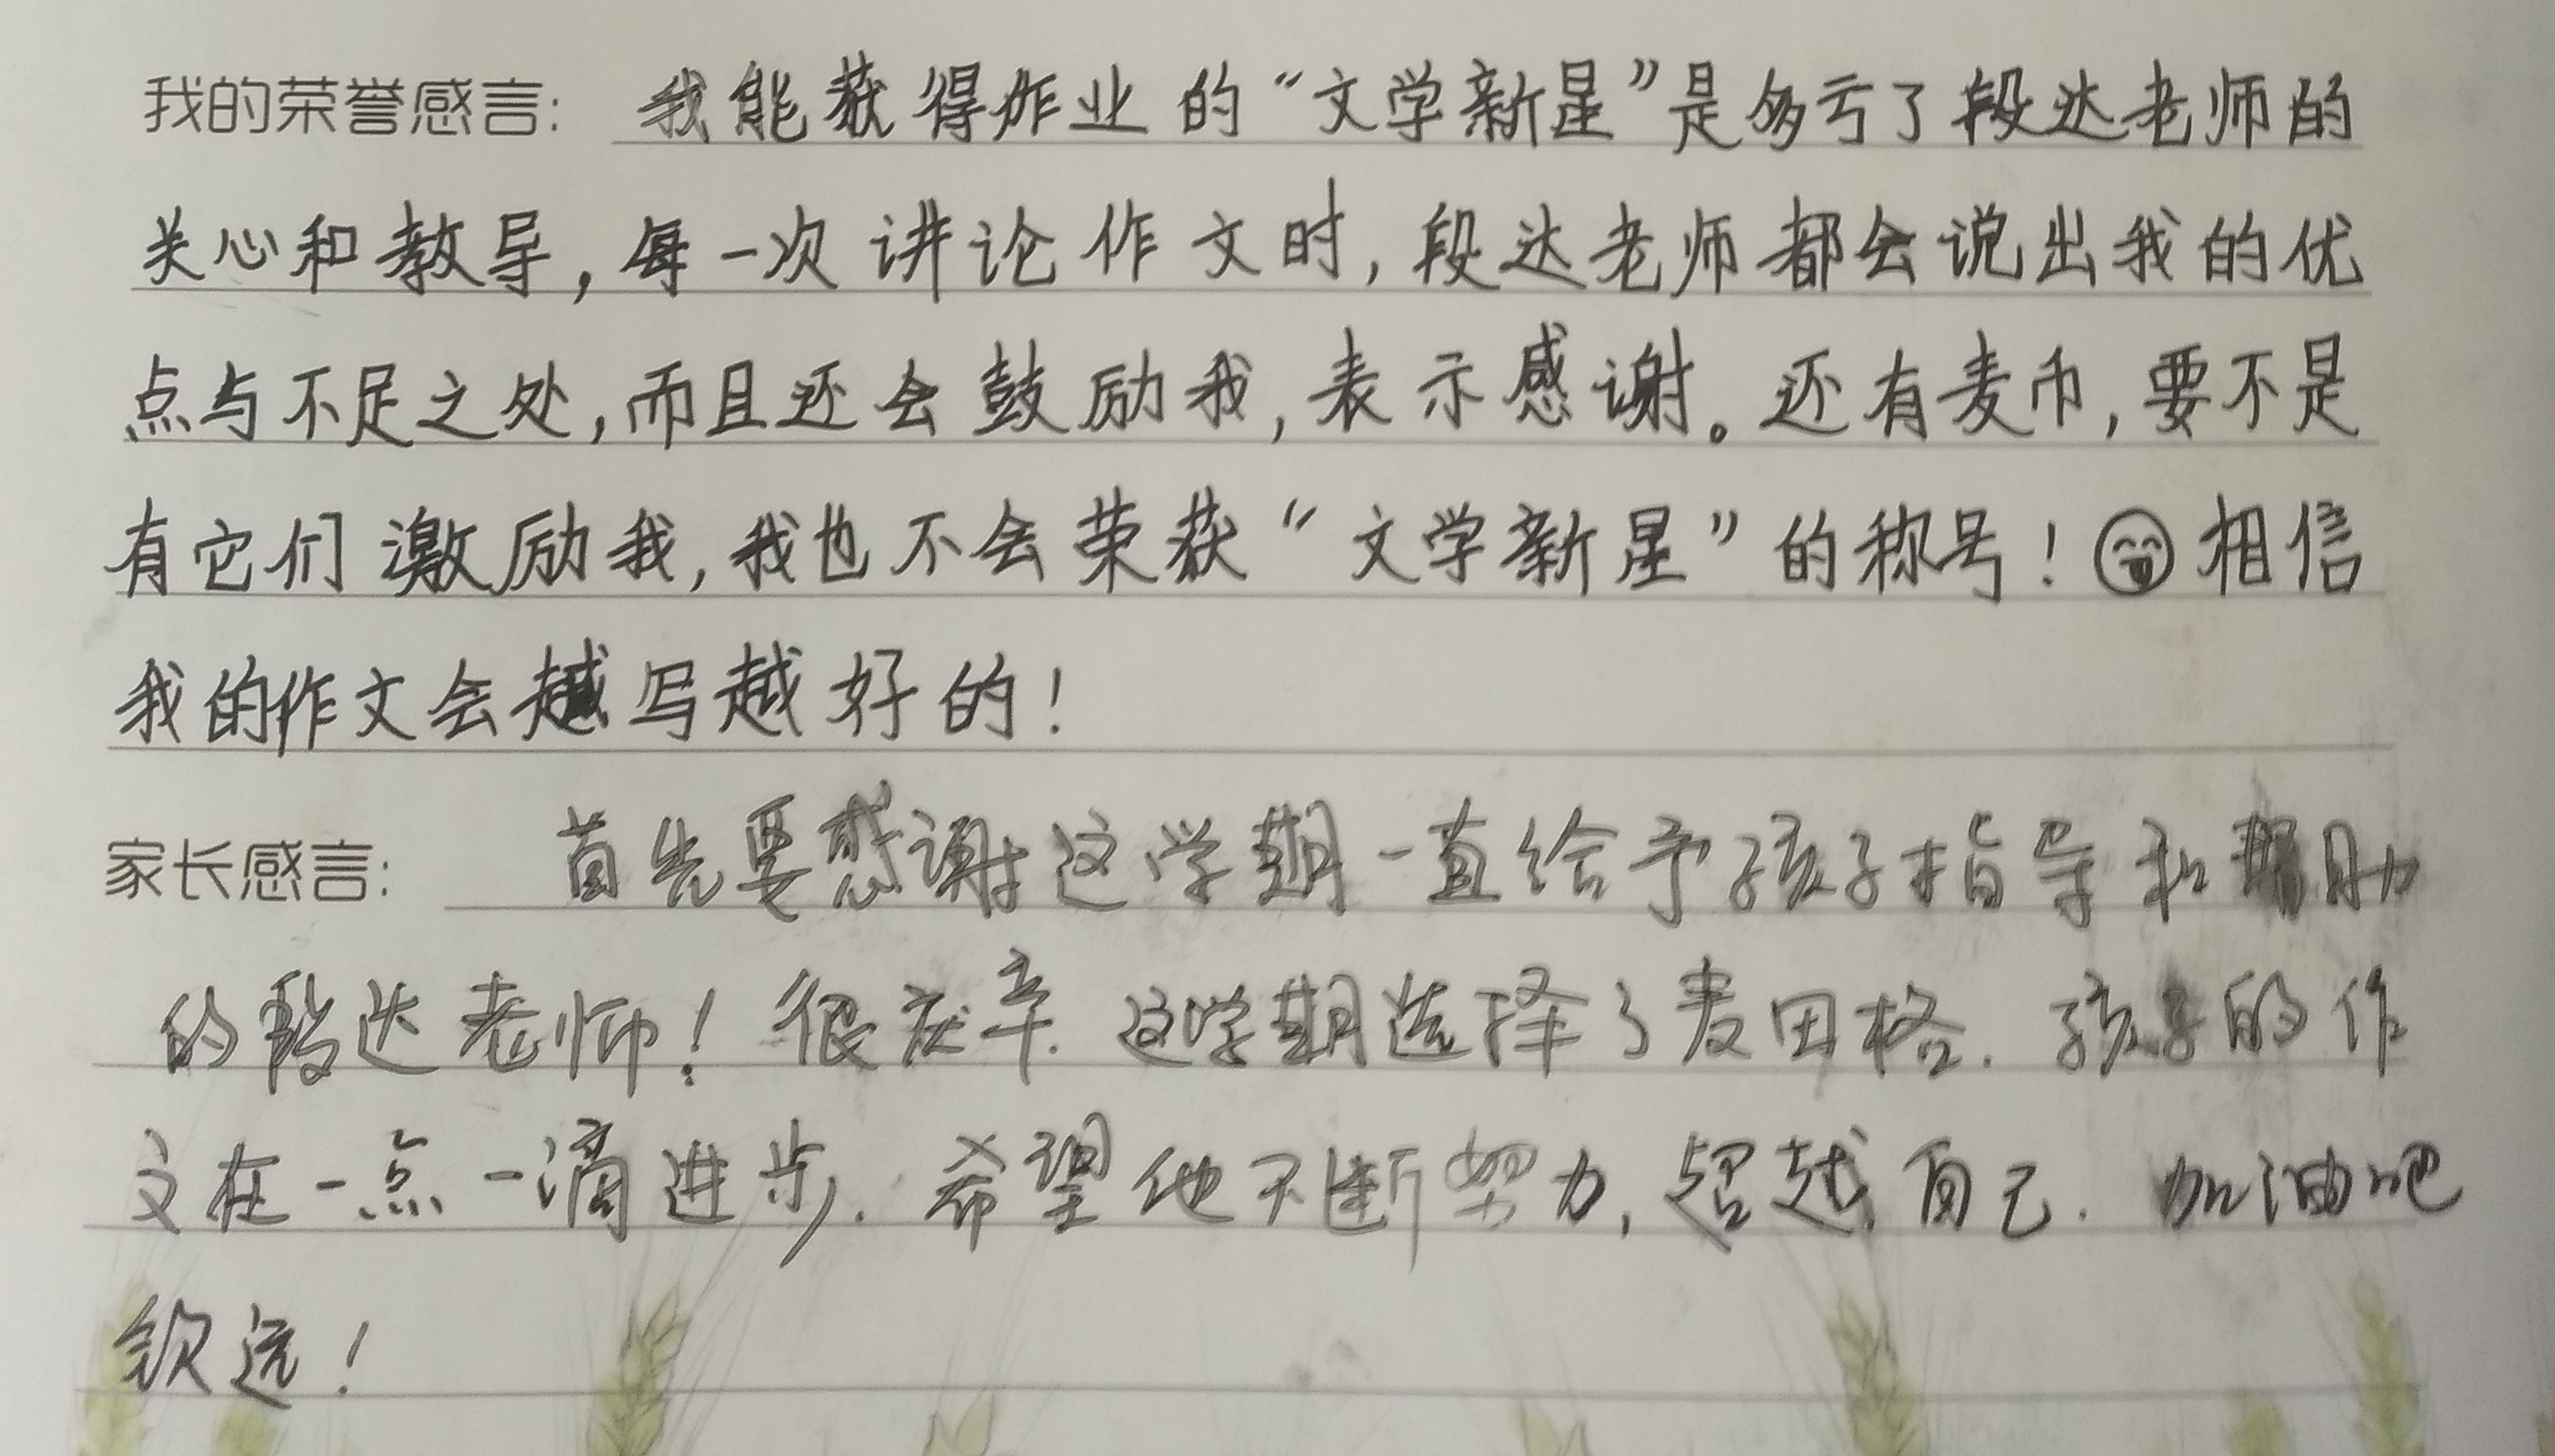 我的荣誉感言: 我能获得作业的“文学新星”是多亏了段达老师的
关心和教导,每一次讲论作文时,段达老师都会说出我的优
点与不足之处,而且还会鼓励我,表示感谢。还有麦币,要不是
有它们激励我,我也不会荣获“文学新星”的称号!相信
我的作文会越写越好的!
家长感言: 首先要感谢这学期一直给予孩子指导和帮助
的段达老师!很庆幸.这学期选择了麦田格.孩子的作
文在一点一滴进步.希望他不断努力,超越自己.加油吧
钦远!